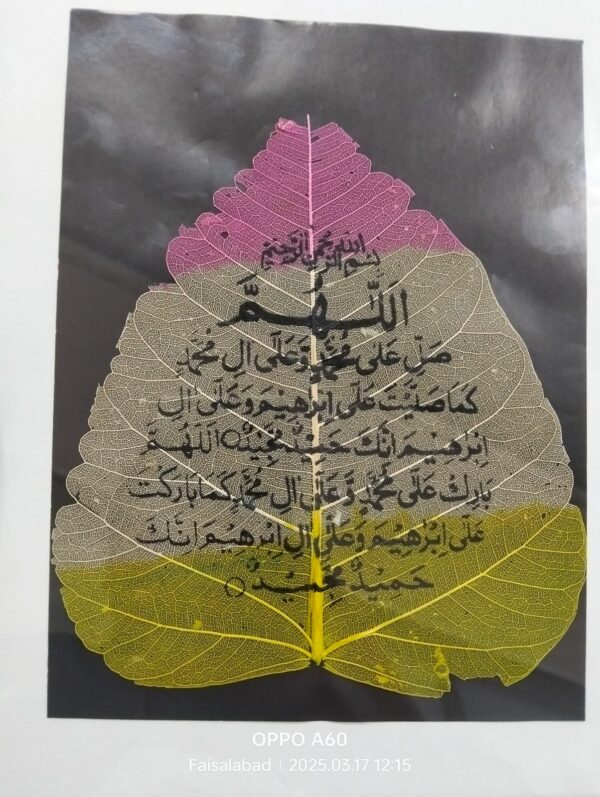 بِسْمِ اللّٰهِ الرَّحْمٰنِ الرَّحِيْمِ
اَللّٰهُمَّ
صَلِّ عَلٰى مُحَمَّدٍ وَّعَلٰٓى اٰلِ مُحَمَّدٍ
كَمَا صَلَّيْتَ عَلٰٓى اِبْرٰهِيْمَ وَعَلٰٓى اٰلِ
اِبْرٰهِيْمَ اِنَّكَ حَمِيْدٌ مَّجِيْدٌ ○ اَللّٰهُمَّ
بَارِكْ عَلٰى مُحَمَّدٍ وَّعَلٰٓى اٰلِ مُحَمَّدٍ كَمَا بَارَكْتَ
عَلٰٓى اِبْرٰهِيْمَ وَعَلٰٓى اٰلِ اِبْرٰهِيْمَ اِنَّكَ
حَمِيْدٌ مَّجِيْدٌ ○
OPPO A60
Faisalabad | 2025.03.17 12:15